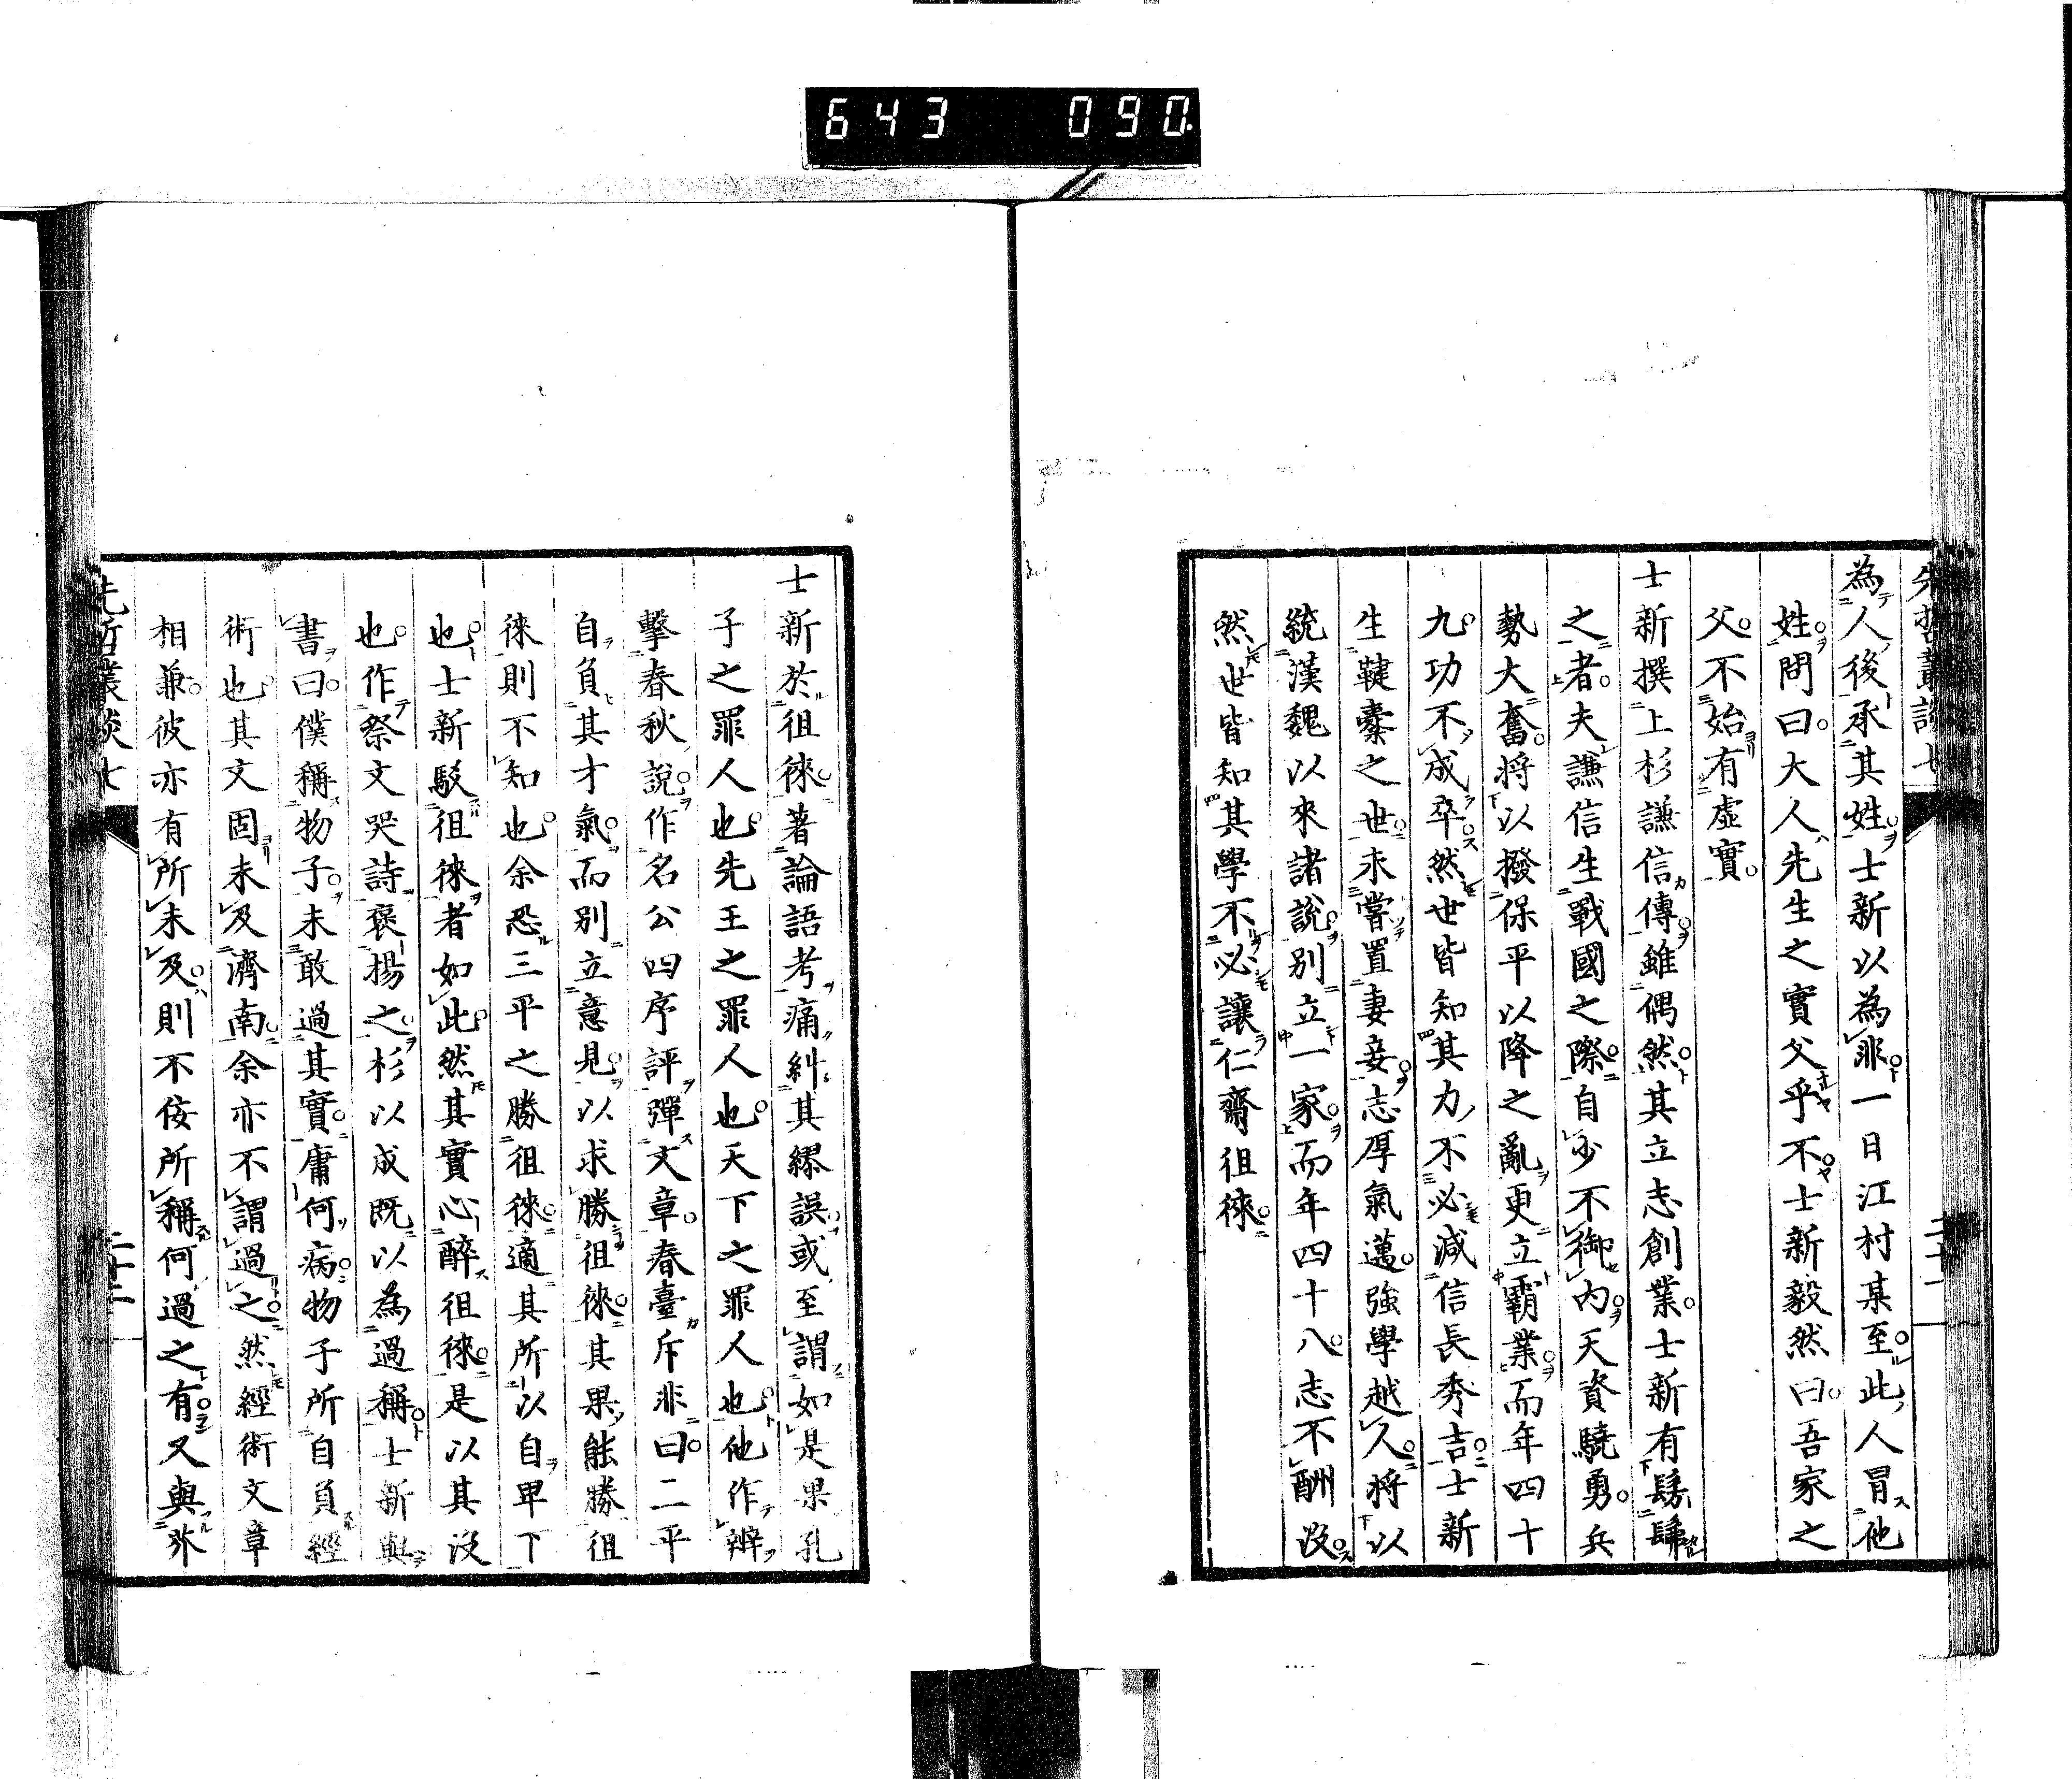 643 090
先哲叢談七 二十一
為人後承其姓士新以為非一日江村某至此人冒他
姓問曰大人先生之實父乎不士新毅然曰吾家之
父不始有虛實
士新撰上杉謙信傳雖偶然其立志創業士新有髣髴
之者夫謙信生戰國之際自少不御內天資驍勇兵
勢大奮將以撥保平以降之亂更立霸業而年四十
九功不成卒然世皆知其力不必減信長秀吉士新
生鞬櫜之世未嘗置妻妾志厚氣邁強學越人將以
統漢魏以來諸說別立一家而年四十八志不酬沒
然世皆知其學不必讓仁齋徂徠
士新於徂徠著論語考痛糾其繆誤或至謂如是果孔
子之罪人也先王之罪人也天下之罪人也他作辨
擊春秋說作名公四序評彈文章春臺斥非曰二平
自負其才氣而別立意見以求勝徂徠其果能勝徂
徠則不知也余恐三平之勝徂徠適其所以自卑下
也士新駁徂徠者如此然其實心醉徂徠是以其沒
也作祭文哭詩褒揚之杉以成既以為過稱士新與
書曰僕稱物子未敢過其實庸何病物子所自負經
術也其文固未及濟南余亦不謂過之然經術文章
相兼彼亦有所未及則不佞所稱何過之有又與芥
先哲叢談七 二十二